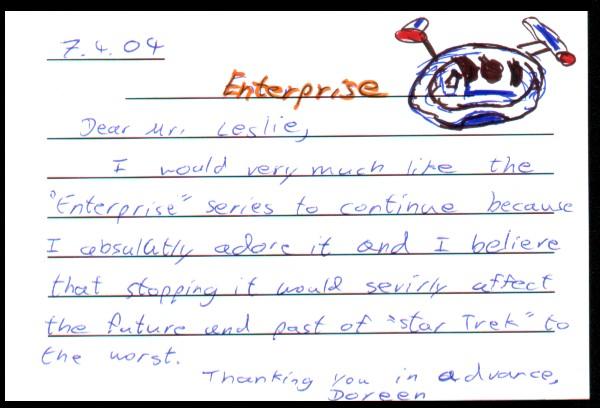 7.4.04
Enterprise
Dear Mr. Leslie,
I would very much like the
"Enterprise" series to continue because
I absulatly adore it and I believe
that stopping it would sevirly affect
the future and past of "star Trek" to
the worst.
Thanking you in advance,
Doreen